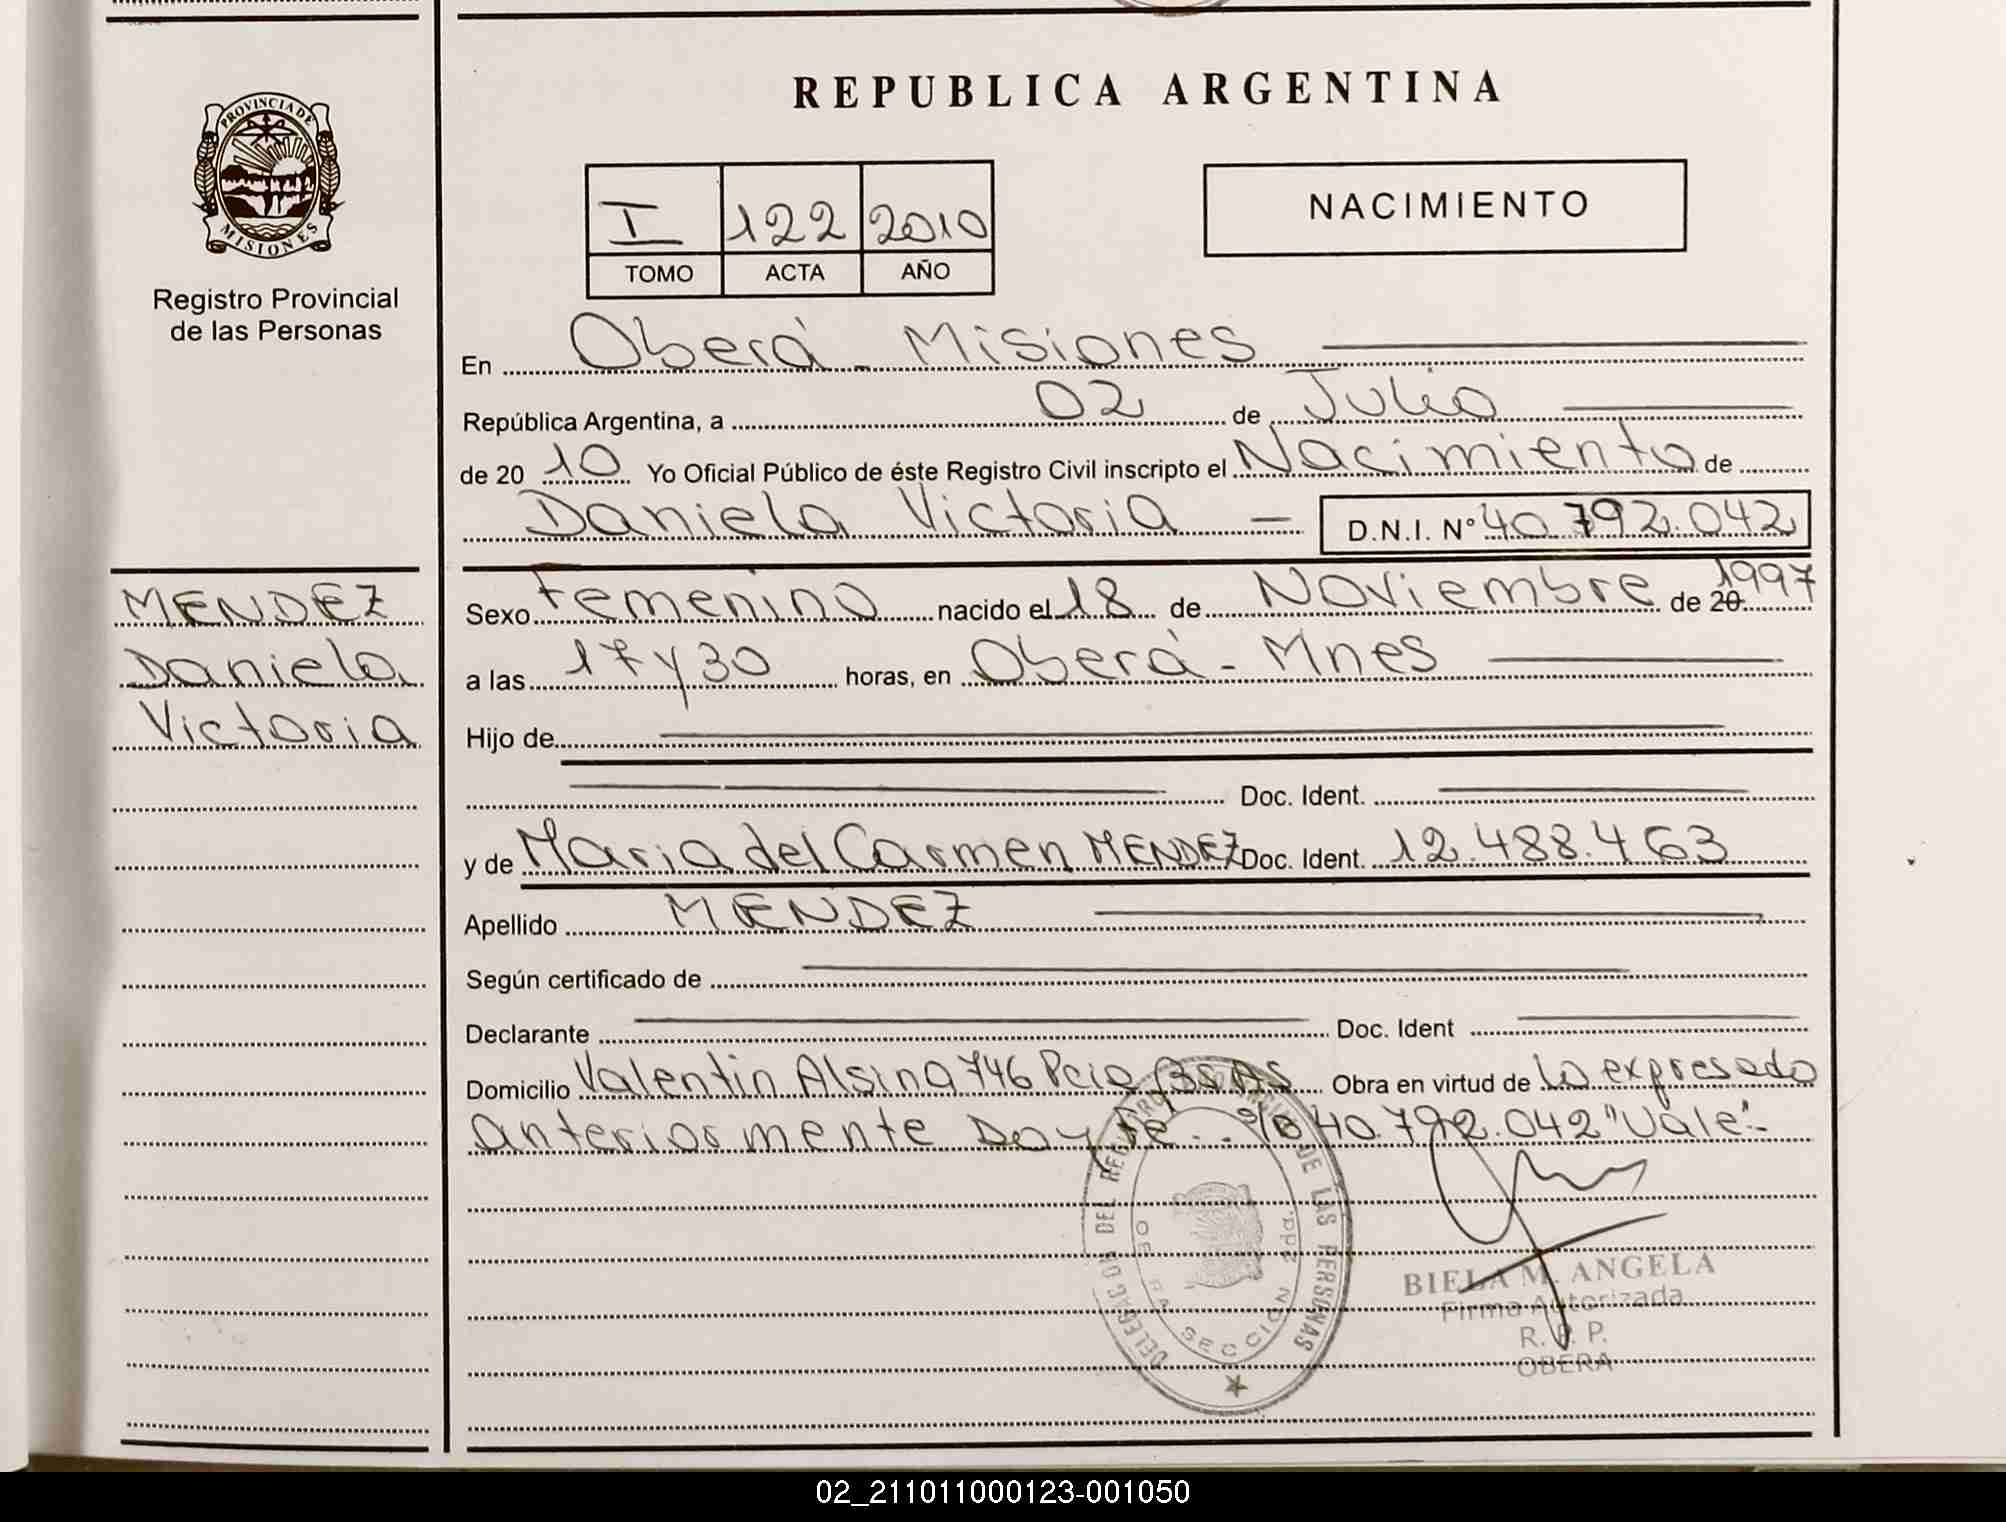 PROVINCIA DE
MISIONES
Registro Provincial
de las Personas
MENDEZ
Daniela
Victoria
REPUBLICA ARGENTINA
I 122 2010
TOMO ACTA AÑO
NACIMIENTO
En Oberá - Misiones
República Argentina, a 02 de Julio
de 20 10 Yo Oficial Público de éste Registro Civil inscripto el Nacimiento de
Daniela Victoria — D.N.I. N° 40.792.042
Sexo Femenino nacido el 18 de Noviembre de 20 1997
a las 17 y 30 horas, en Oberá - Mnes
Hijo de
Doc. Ident.
y de Maria del Carmen MENDEZ Doc. Ident. 12.488.463
Apellido MENDEZ
Según certificado de
Declarante Doc. Ident
Domicilio Valentin Alsina 746 Pcia Bs As Obra en virtud de lo expresado
anteriormente Doy fe.- 40.792.042 "Vale".-
DELEGACION DEL REGISTRO DE LAS PERSONAS
OBERA SECCION 2da.
BIELA M. ANGELA
Firma Autorizada
R. P. P.
OBERA
02_211011000123-001050